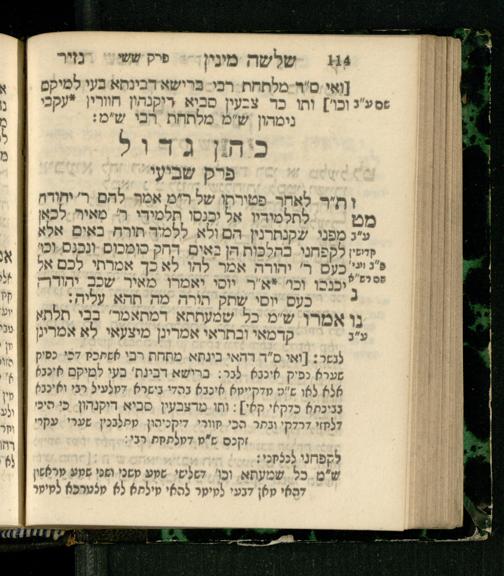 114 שלשה מינין פרק ששי נזיר
[ואי ס״ד מלתחת רבי ברישא דבינתא בעי למיקם
שם ע״ב וכו׳] ותו כד צבעין סביא דיקנהון חוורין *עקבי
נימהון ש״מ מלתחת רבי ש״מ:
כהן גדול
פרק שביעי
ות״ר לאחר פטירתו של ר״מ אמר להם ר׳ יהודה
מט לתלמידיו אל יכנסו תלמידי ר׳ מאיר לכאן
ע״ב מפני שקנתרנין הם ולא ללמוד תורה באים אלא
קדושין לקפחני בהלכות הן באים דחק סומכוס ונכנס וכו׳
כעס ר׳ יהודה אמר להו לא כך אמרתי לכם אל
יכנסו וכו׳ *א״ר יוסי יאמרו מאיר שכב יהודה
נ כעס יוסי שתק תורה מה תהא עליה:
נו אמרו ש״מ כל שמעתתא דמתאמר׳ בבי תלתא
ע״ב קדמאי ובתראי אמרינן מיצעאי לא אמרינן
[ואי ס״ד דהאי בינתא מתחת רבי אשתכח דכי נפיק
שערא נפיק איבנא לבר: ברישא דבינת׳ בעי למיקם איבנא
אלא לאו ש״מ מדקיימא איבנא בהדי בישרא דמלעיל רבי ואיבנא
בבינתא כדקאי קאי]: ותו מדצבעין סביא דיקנהון כי היכי
ובתר הכי חוורי דיקניהון מתלבנין שערי עקרי
זקנם ש״מ דמלתחת רבי:
לקפחני
ש״מ כל שמעתא וכו׳ דשלישי שמע משני ושני שמע מראשון
דהאי מאן דבעי למימר להאי מילתא לא מלערכא למימר